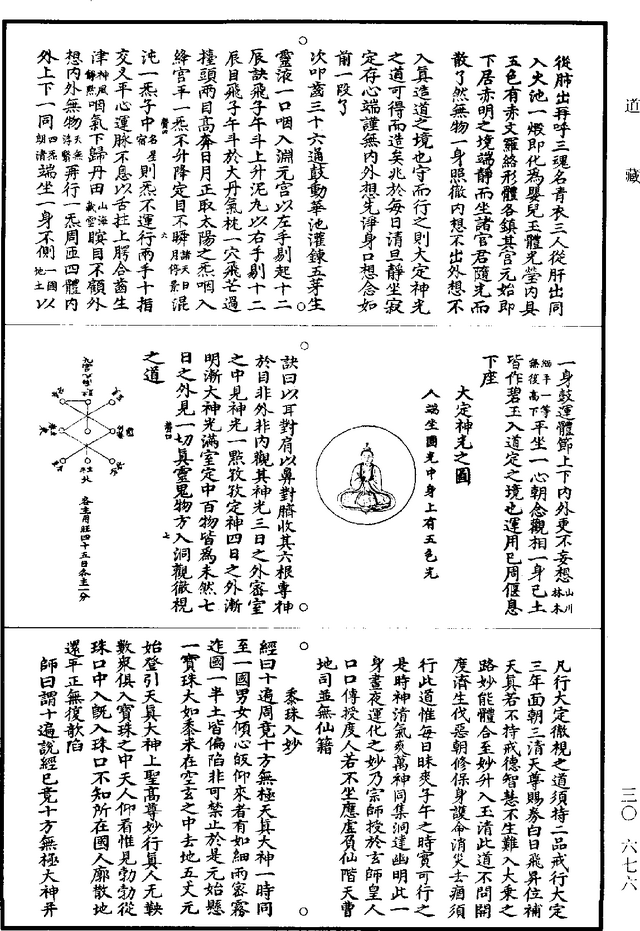 道藏
從肺出再呼三魂名青衣三人從肝出同
入火池一煅即化為嬰兒玉體光瑩內具
五色有赤文羅絡形體各鎮其宮元始即
下居赤明之境端靜而坐諸官君隨光而
散了然無物一身照徹內想不出外想不
入真造道之境也守而行之則大定神光
之道可得而造矣兆於每日清旦靜坐寂
定存心端謹無內外想先淨身口想念如
前一段了
次叩齒三十六過鼓動華池灌鍊五芽生
靈液一口咽入淵元宮以左手剔起十二
辰訣飛子午斗上升泥丸以右手剔十二
辰目飛子午斗於大丹氣枕一穴飛芒過
擡頭兩目高奔日月正取太陽之炁咽入
絳宮平一炁不升降定目不瞬諸天日月停景混
沌一炁子中名星宿則炁不運行兩手十指
交叉平心運脉不息以舌拄上腭合齒生
津神風靜默咽氣下歸丹田山海藏雲瞑目不顧外
想內外無物天無浮翳再行一炁周匝四體內
外上下一同四炁朗清端坐一身不側一國地土以
一身鼓運體節上下內外更不妄想山川林木
緇平一等無復高下平坐一心朝念觀相一身已土
皆作碧玉入道定之境也運用已周偃息
下座
大定神光之圖
人端坐圓光中身上有五色光
訣曰以耳對肩以鼻對臍收其六根專神
於目非外非內觀其神光三日之外密室
之中見神光一點孜孜定神四日之外漸
明漸大神光滿室定中百物皆為未然七
日之外見一切真靈鬼物方入洞觀徹視
之道
北
各主月旺四十五日各主一分
凡行大定徹視之道須持二品戒行大定
三年面朝三清天尊賜券白日飛昇位補
天真若不持戒德智慧不生難入大乘之
路妙能體合至妙升入玉清此道不問開
度濟生伐惡朝修保身護命消災去痾須
行此道惟每日昧爽子午之時實可行之
是時神清氣爽萬神同集洞達幽明此一
身晝夜運化之妙乃宗師授於玄師皇人
口口傳授度人若不坐應虛負仙階天曹
地司並無仙籍
黍珠入妙
經曰十遍周竟十方無極天真大神一時同
至一國男女傾心皈仰來者有如細雨密霧
迮國一半土皆偏陷非可禁止於是元始懸
一寶珠大如黍米在空玄之中去地五丈元
始登引天真大神上聖高尊妙行真人无鞅
數衆俱入寶珠之中天人仰看惟見勃勃從
珠口中入既入珠口不知所在國人廓散地
還平正無復欹陷
師曰謂十遍說經已竟十方無極大神并
三〇　六七六